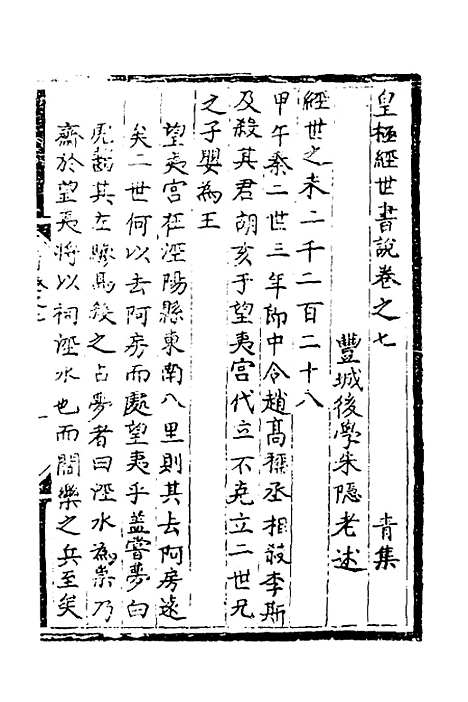 皇極經世書說卷之七　青集
豐城後學朱隱老述
經世之未二千二百二十八
甲午秦二世三年郎中令趙高稱丞相殺李斯
及殺其君胡亥于望夷宮代立不克立二世兄
之子嬰為王
望夷宮在涇陽縣東南八里則其去阿房遠
矣二世何以去阿房而處望夷乎蓋嘗夢白
虎齧其左驂馬殺之占夢者曰涇水為祟乃
齋於望夷將以祠涇水也而閻樂之兵至矣